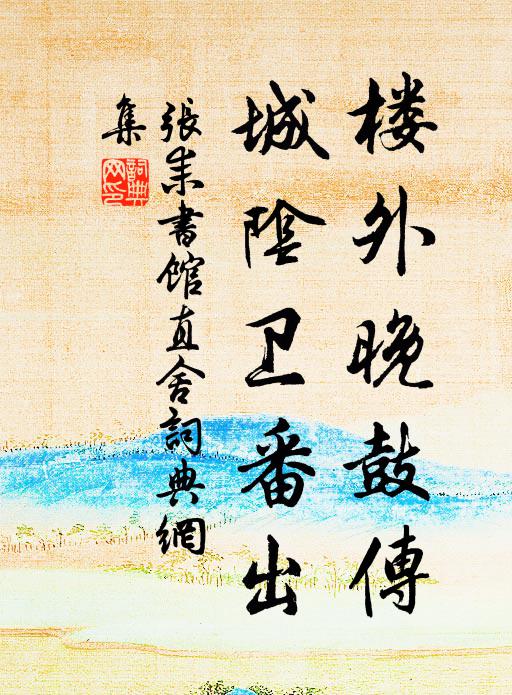 楼外晚鼓傳
城陰卫番出
張耒書館直舍詞典網
集
詞典
网印